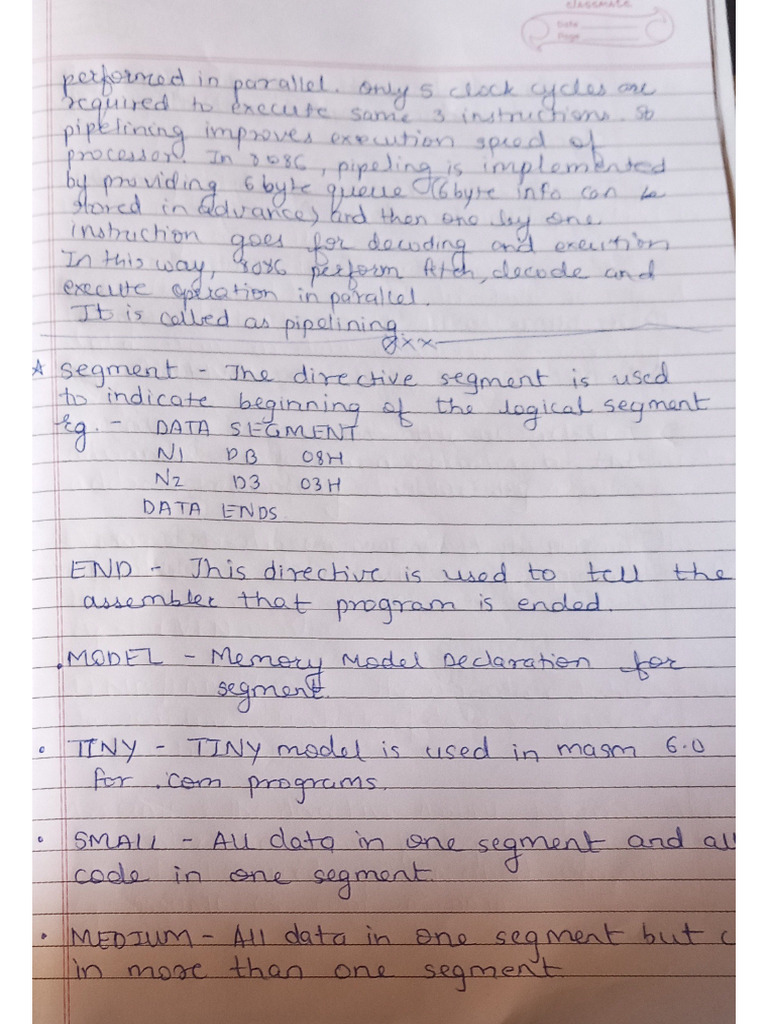 classmate
Date
Page
performed in parallel. Only 5 clock cycles are
required to execute same 3 instructions. So
pipelining improves execution speed of
processor. In 8086, pipeling is implemented
by providing 6 byte queue (6 byte info can be
stored in advance) and then one by one
instruction goes for decoding and execution
In this way, 8086 perform fetch, decode and
execute operation in parallel.
It is called as pipelining
Segment - The directive segment is used
to indicate beginning of the logical segment
Eg. - DATA SEGMENT
N1 DB 08H
N2 DB 03H
DATA ENDS
END - This directive is used to tell the
assembler that program is ended.
.MODEL - Memory Model Declaration for
segment.
• TINY - TINY model is used in masm 6.0
for .com programs.
• SMALL - All data in one segment and all
code in one segment.
• MEDIUM - All data in one segment but
in more than one segment